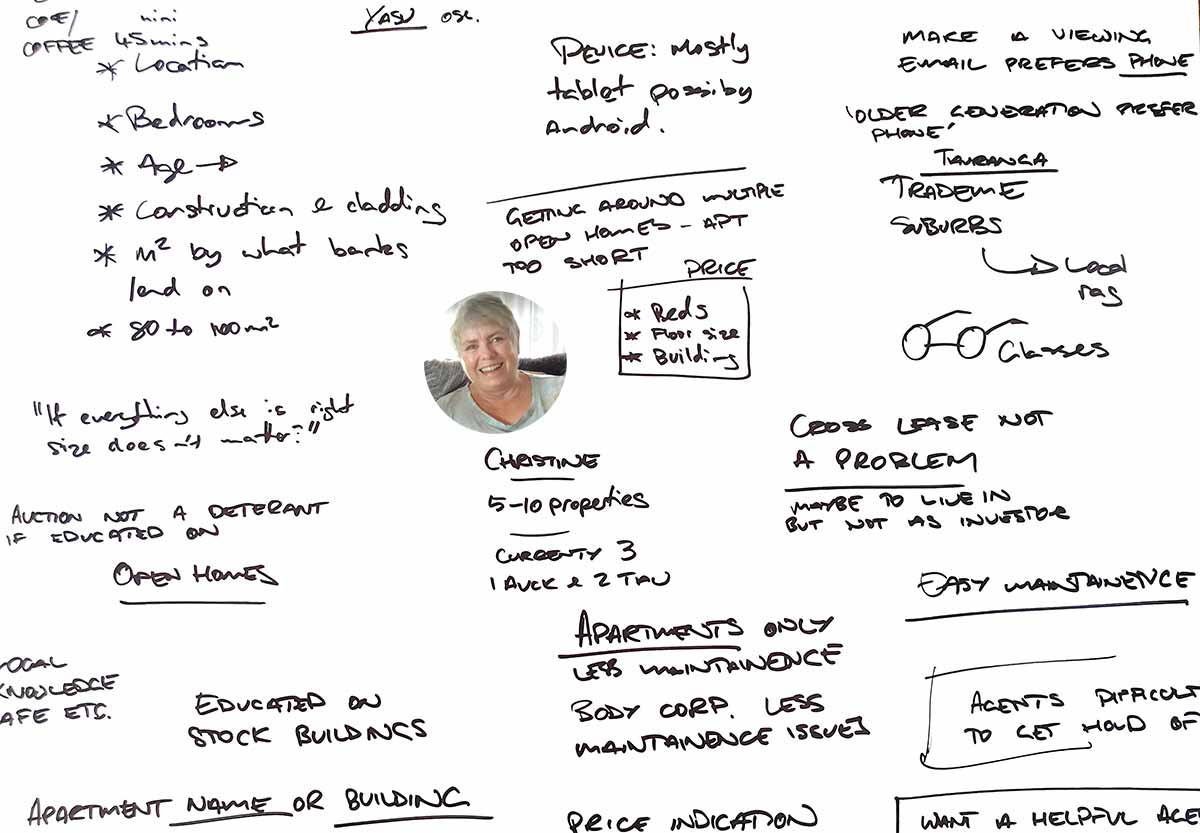 COFFEE 45mins
* Location
* Bedrooms
* Age →
* Construction & cladding
* m² by what banks
lend on
* 80 to 100m²
"If everything else is right
size does n't matter?"
AUCTION NOT A DETERANT
IF EDUCATED ON
OPEN HOMES
KNOWLEDGE
AFE ETC.
EDUCATED ON
STOCK BUILDINGS
APARTMENT NAME OR BUILDING
DEVICE: Mostly
tablet possiby
Android.
GETTING AROUND MULTIPLE
OPEN HOMES - APT
TOO SHORT
PRICE
* Beds
* Floor size
* Building
CHRISTINE
5-10 properties
CURRENTY 3
1 AUCK & 2 TAU
APARTMENTS ONLY
LESS MAINTAINENCE
BODY CORP. LESS
MAINTAINENCE ISSUES
PRICE INDICATION
MAKE A VIEWING
EMAIL PREFERS PHONE
'OLDER GENERATION PREFER
PHONE'
TAURANGA
TRADEME
SUBURBS
→ Local
rag
Glasses
CROSS LEASE NOT
A PROBLEM
MAYBE TO LIVE IN
BUT NOT AS INVESTOR
EASY MAINTAINENCE
AGENTS DIFFICULT
TO GET HOLD OF
WANT A HELPFUL AGE